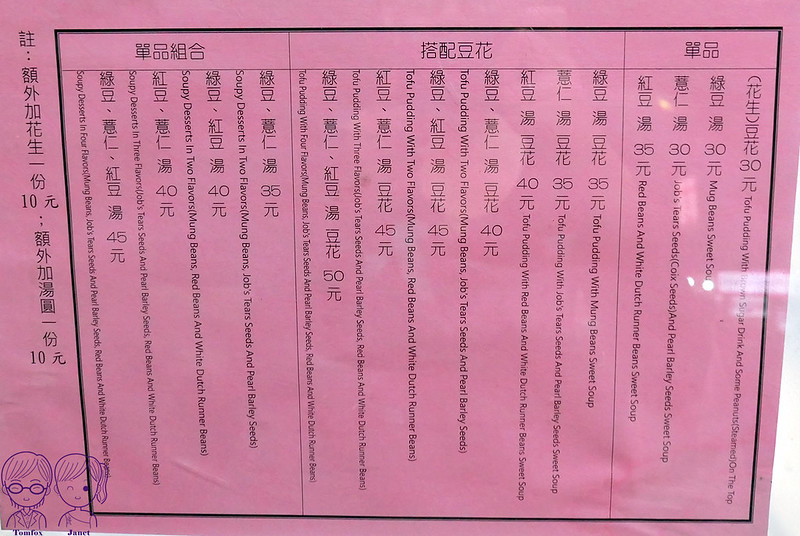 單品
(花生)豆花30元 Tofu Pudding With Brown Sugar Drink And Some Peanuts(Steamed)On The Top
綠豆 湯 30元 Mug Beans Sweet Soup
薏仁 湯 30元 Job's Tears Seeds(Coix Seeds)And Pearl Barley Seeds Sweet Soup
紅豆 湯 35元 Red Beans And White Dutch Runner Beans Sweet Soup
搭配豆花
綠豆 湯 豆花 35元 Tofu Pudding With Mung Beans Sweet Soup
薏仁 湯 豆花 35元 Tofu Pudding With Job's Tears Seeds And Pearl Barley Seeds Sweet Soup
紅豆 湯 豆花 40元 Tofu Pudding With Red Beans And White Dutch Runner Beans Sweet Soup
綠豆、薏仁 湯 豆花 40元
Tofu Pudding With Two Flavors(Mung Beans, Job's Tears Seeds And Pearl Barley Seeds)
綠豆、紅豆 湯 豆花 45元
Tofu Pudding With Two Flavors(Mung Beans, Red Beans And White Dutch Runner Beans)
紅豆、薏仁 湯 豆花 45元
Tofu Pudding With Three Flavors(Job's Tears Seeds And Pearl Barley Seeds, Red Beans And White Dutch Runner Beans)
綠豆、薏仁、紅豆 湯 豆花 50元
Tofu Pudding With Four Flavors(Mung Beans, Job's Tears Seeds And Pearl Barley Seeds, Red Beans And White Dutch Runner Beans)
單品組合
綠豆、薏仁 湯 35元
Soupy Desserts In Two Flavors(Mung Beans, Job's Tears Seeds And Pearl Barley Seeds)
綠豆、紅豆 湯 40元
Soupy Desserts In Two Flavors(Mung Beans, Red Beans And White Dutch Runner Beans)
紅豆、薏仁 湯 40元
Soupy Desserts In Three Flavors(Job's Tears Seeds And Pearl Barley Seeds, Red Beans And White Dutch Runner Beans)
綠豆、薏仁、紅豆 湯 45元
Soupy Desserts In Four Flavors(Mung Beans, Job's Tears Seeds And Pearl Barley Seeds, Red Beans And White Dutch Runner Beans)
註：額外加花生一份10元；額外加湯圓一份10元
Tomfox Janet